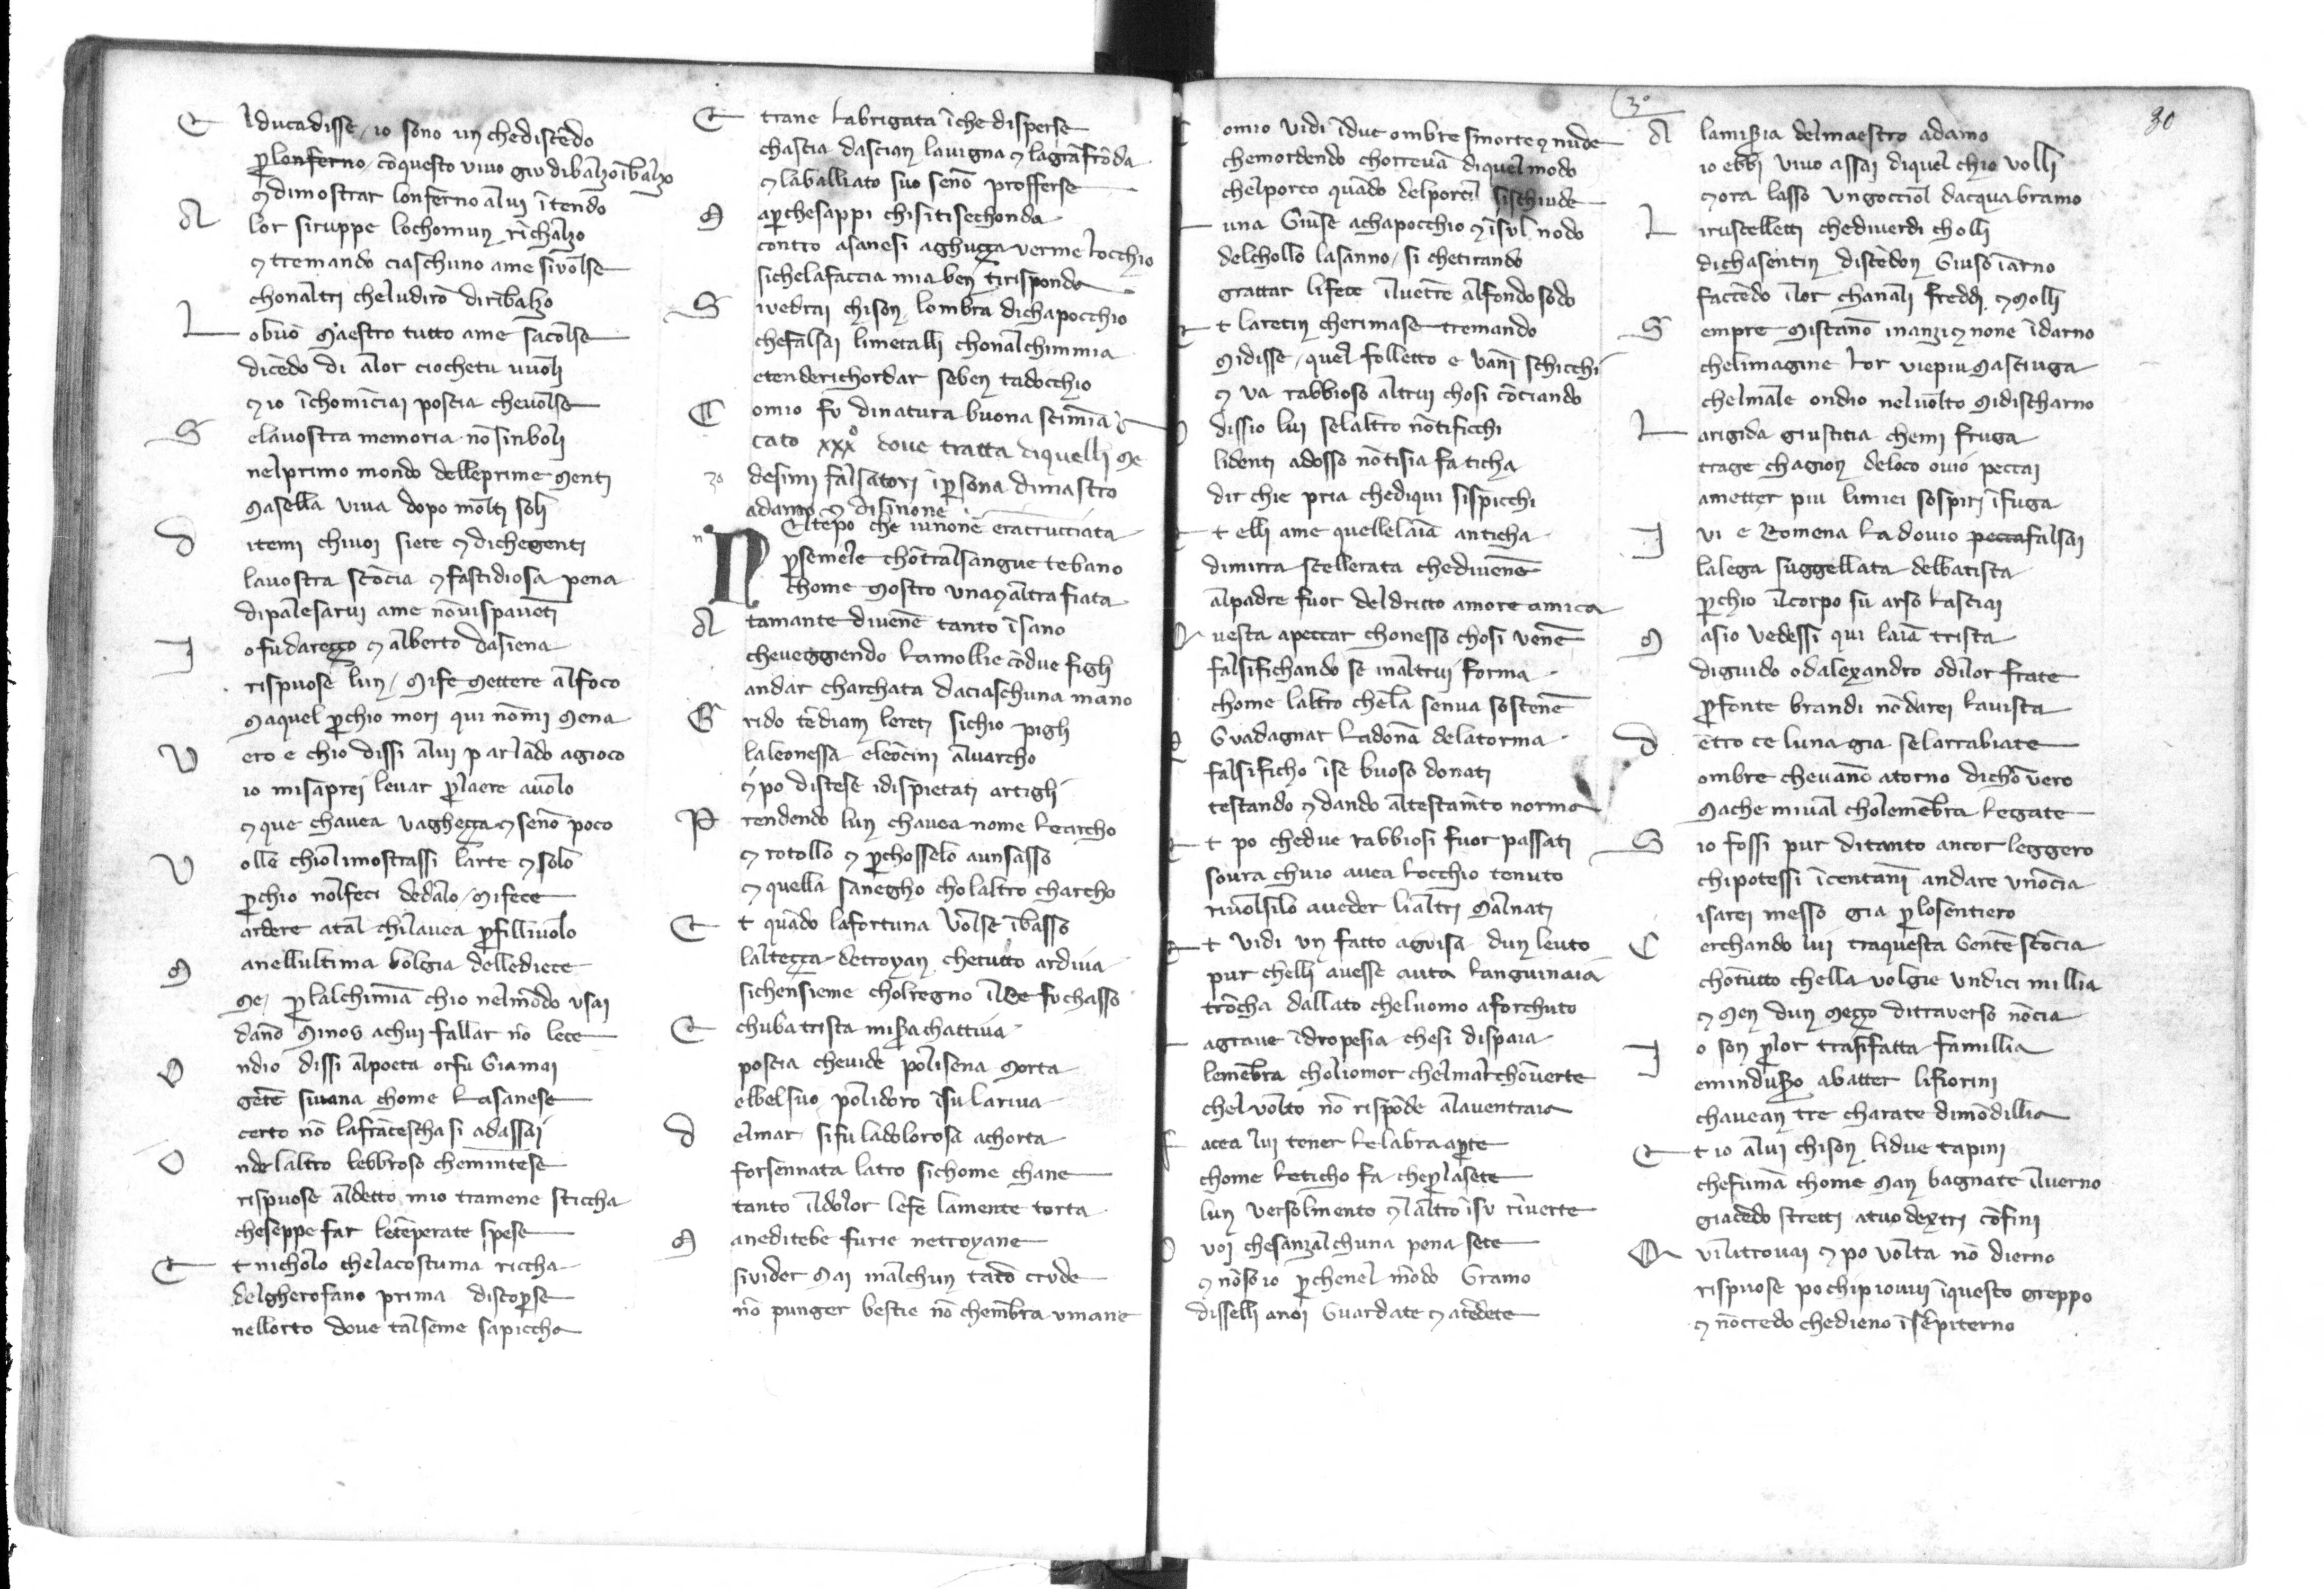 E l duca disse / io sono un che discēdo
ꝑ lonferno / cō questo vivo giu di balzo ī balzo
⁊ dimostrar lonferno allui ītendo
A lor si ruppe lo chomun richalzo
⁊ tremando ciaschuno a me si volse
chon altri che ludiro di ribalzo
L o buō maestro tutto a me sacolse
dicēdo di allor cio che tu vuoli
⁊ io īchomīciai poscia che volse
S e la vostra memoria nō sinboli
nel primo mondo delle prime menti
ma sella viva dopo molti soli
D itemi chi voi siete ⁊ di che genti
la vostra scōcia ⁊ fastidiosa pena
di palesarvi a me nō vi spaventi
I o fu darezzo ⁊ alberto da siena
rispuose lun / mi fe mettere al foco
ma quel ꝑ chio mori qui nō mi mena
V ero e chio dissi allui parlādo a gioco
io mi saprei levar ꝑ laere a volo
⁊ que chavea vaghezza ⁊ seno poco
V olle chio li mostrassi larte ⁊ solo
ꝑ chio nol feci dedalo / mi fece
ardere a tal chi lavea ꝑ fillivolo
M a nellultima bolgia delle diece
me / ꝑ lalchimia chio nel mōdo usai
danō minos a chui fallar nō lece
O ndio dissi al poeta or fu giamai
gēte si vana chome la sanese
certo nō la frācescha si adassai
O nde laltro lebbroso che mintese
rispuose al detto mio tramene sticcha
che seppe far le tēperate spese
E t nicholo che la costuma riccha
del gherofano prima discoꝑse
nellorto dove tal seme sapiccha
E trane la brigata ī che disperse
chascia dascian la vigna ⁊ la grā frōda
⁊ laballiato suo seno profferse
M a ꝑche sappi chi si ti sechonda
contro a sanesi aghuzza ver me locchio
si che la faccia mia ben ti risponda
S i vedrai chi son lombra di chapocchio
che falsai li metalli chon alchimmia
e ten de richordar se ben tadocchio
C omio fu di natura buona scimia
cato xxxº dove tratta di quelli me
30 desimi falsatori ī ꝑsona di mastro
adamo ⁊ di sinone
N el tēpo che iunone era crucciata
ꝑ semele chōtral sangue tebano
chome mostro una ⁊ altra fiata
A tamante divene tanto īsano
che veggendo la mollie cō due figli
andar charchata da ciaschuna mano
G rido tēdian le reti si chio pigli
la leonessa e leōcini al varcho
⁊ po distese i dispietati artigli
P rendendo lun chavea nome learcho
⁊ rotollo ⁊ ꝑchosselo a un sasso
⁊ quella sanegho cho laltro charcho
E t quādo la fortuna volse ī basso
laltezza de troyan che tutto ardiva
si chensieme chol regno il re fu chasso
E chuba trista miꝫa ⁊ chattiva
poscia che vide polisena morta
e bel suo polidoro ī su la riva
D el mar si fu la dolorosa achorta
forsennata latro si chome chane
tanto il dolor le fe la mente torta
M a ne di tebe furie ne troyane
si vider mai in alchun tāto crude
nō punger bestie nō che mēbra umane
C omio vidi ī due ombre smorte ⁊ nude
che mordendo chorrevā di quel modo
chel porco quādo del porcil si schiude
L una giūse a chapocchio ⁊ ī sul nodo
del chollo lasanno / si che tirando
grattar li fece il vētre al fondo sodo
E t laretin che rimase tremando
mi disse / quel folletto e vāni schicchi
⁊ va rabbioso altrui chosi cōciando
O dissio lui se laltro nō ti ficchi
li denti adosso nō ti sia faticha
dir chi e pria che di qui si spicchi
E t elli a me quelle laīa anticha
di mirra scellerata che divēne
al padre fuor del dritto amore amica
Q uesta a peccar chonesso chosi vēne
falsifichando se in altrui forma
chome laltro che la senva sostēne
P guadagnar la dōna de la torma
falsificho ī se buoso donati
testando ⁊ dando al testamēto norma
E t po che due rabbiosi fuor passati
sovra chuio avea locchio tenuto
rivolsilo a veder li altri mal nati
E t vidi un fatto a guisa dun leuto
pur chelli avesse auta languinaia
trōcha dallato che luomo a forchuto
L a grave idropesia che si dispaia
le mēbra cho liomor che mal chōverte
chel volto nō rispōde a la ventraia
F acea lui tener le labra aꝑte
chome leticho fa che ꝑ la sete
lun verso lmento ⁊ laltro ī su riverte
O voi che sanzalchuna pena sete
⁊ nō so io ꝑche nel mōdo gramo
dissellj a noi guardate ⁊ atēdete
3º
30
A la miꝫia del maestro adamo
io ebbi vivo assai di quel chio volli
⁊ ora lasso un gocciol dacqua bramo
L i ruscelletti che di verdi cholli
di chasentin discēdon giuso ī arno
faccēdo i lor chanali freddi ⁊ molli
S empre mi stāno inanzi ⁊ none īdarno
che limagine lor vie piu masciuga
chel male ondio nel volto mi discharno
L a rigida giustitia che mi fruga
trage chagion de loco ovio peccai
a metter piu li miei sospiri ī fuga
I vi e romena la dovio pecca falsai
la lega suggellata del batista
ꝑ chio il corpo su arso lasciai
M a sio vedessi qui laīa trista
di guido o dalexandro o di lor frate
ꝑ fonte brandi nō darei la vista
D ētro ce luna gia se larrabiate
ombre che vāno atorno dichō vero
ma che mi val cho le mēbra legate
S io fossi pur di tanto ancor leggero
chi potessi ī centāni andare unōcia
i sarei messo gia ꝑ lo sentiero
C erchando lui tra questa gente scōcia
chō tutto chella volgie undici millia
⁊ men dun mezzo di traverso nō cia
I o son ꝑ lor tra si fatta famillia
e mindusꝫo a batter li fiorini
chavean tre charate di mōdillia
E t io allui chi son li due tapini
che fumā chome man bagnate il verno
giacēdo stretti a tuo dextri cōfini
Q vi li trovai ⁊ po volta nō dierno
rispuose po chi piovvi ī questo greppo
⁊ nō credo che dieno ī sēpiterno